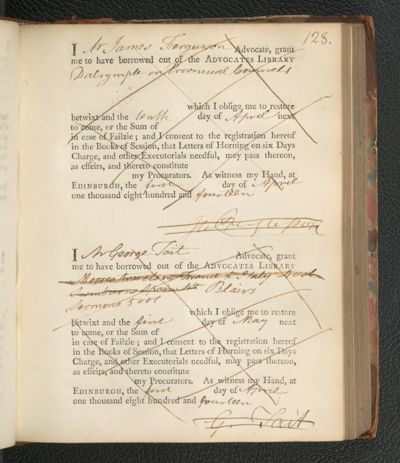 128.
I Mr James Ferguson Advocate, grant
me to have borrowed out of the ADVOCATES LIBRARY
Dalrymple on Provincial Councils
which I oblige me to restore
betwixt and the tenth day of April next
to come, or the Sum of
in case of Failzie; and I consent to the registration hereof
in the Books of Session, that Letters of Horning on six Days
Charge, and other Executorials needful, may pass thereon,
as effeirs, and thereto constitute
my Procurators. As witness my Hand, at
EDINBURGH, the first day of April
one thousand eight hundred and fourteen
I Mr George Tait Advocate, grant
me to have borrowed out of the ADVOCATES LIBRARY
Travels
Blairs
Sermons 5 vol
which I oblige me to restore
betwixt and the first day of May next
to come, or the Sum of
in case of Failzie; and I consent to the registration hereof
in the Books of Session, that Letters of Horning on six Days
Charge, and other Executorials needful, may pass thereon,
as effeirs, and thereto constitute
my Procurators. As witness my Hand, at
EDINBURGH, the first day of April
one thousand eight hundred and fourteen
G. Tait